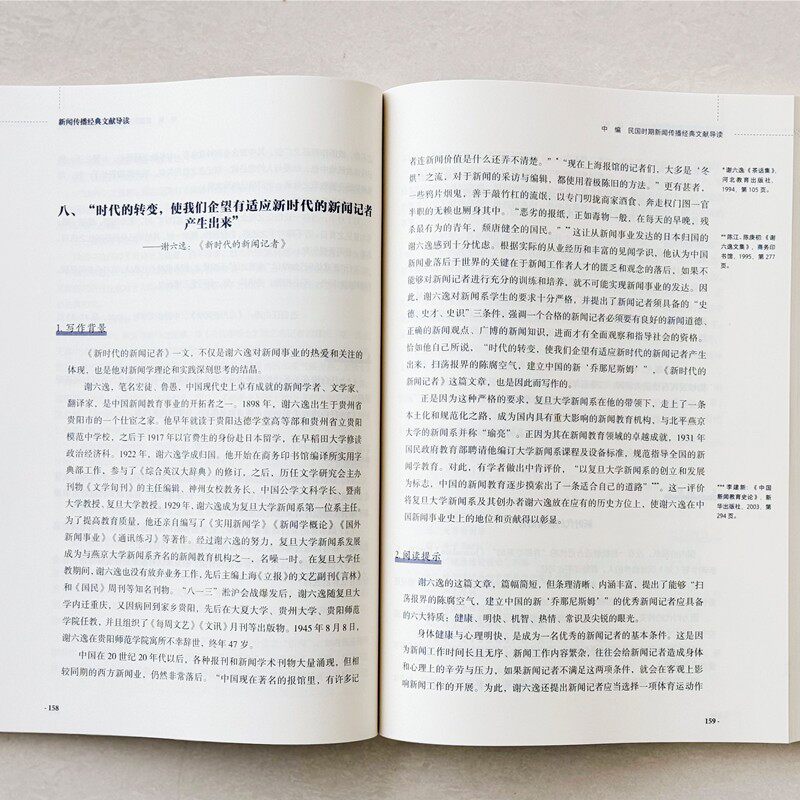 新闻传播经典文献导读
八、“时代的转变，使我们企望有适应新时代的新闻记者
产生出来”
——谢六逸：《新时代的新闻记者》
1 写作背景
《新时代的新闻记者》一文，不仅是谢六逸对新闻事业的热爱和关注的
体现，也是他对新闻学理论和实践深刻思考的结晶。
谢六逸，笔名宏徒、鲁愚，中国现代史上卓有成就的新闻学者、文学家、
翻译家，是中国新闻教育事业的开拓者之一。1898年，谢六逸出生于贵州省
贵阳市的一个仕宦之家。他早年就读于贵阳达德学堂高等部和贵州省立贵阳
模范中学校，之后于1917年以官费生的身份赴日本留学，在早稻田大学修读
政治经济科。1922年，谢六逸学成归国。他开始在商务印书馆编译所实用字
典部工作，参与了《综合英汉大辞典》的修订，之后，历任文学研究会主办
刊物《文学旬刊》的主任编辑、神州女校教务长、中国公学文科学长、暨南
大学教授、复旦大学教授。1929年，谢六逸成为复旦大学新闻系第一位系主任。
为了提高教育质量，他还亲自编写了《实用新闻学》《新闻学概论》《国外
新闻事业》《通讯练习》等著作。经过谢六逸的努力，复旦大学新闻系发展
成为与燕京大学新闻系齐名的新闻教育机构之一，名噪一时。在复旦大学任
教期间，谢六逸也没有放弃业务工作，先后主编上海《立报》的文艺副刊《言林》
和《国民》周刊等知名刊物。“八一三”淞沪会战爆发后，谢六逸随复旦大
学内迁重庆，又因病回到家乡贵阳，先后在大夏大学、贵州大学、贵阳师范
学院任教，并且组织了《每周文艺》《文讯》月刊等出版物。1945年8月8日，
谢六逸在贵阳师范学院寓所不幸辞世，终年47岁。
中国在20世纪20年代以后，各种报刊和新闻学术刊物大量涌现，但相
较同期的西方新闻业，仍然非常落后。“中国现在著名的报馆里，有许多记
·158
中 编 民国时期新闻传播经典文献导读
者连新闻价值是什么还弄不清楚。”*“现在上海报馆的记者们，大多是‘冬
烘’之流，对于新闻的采访与编辑，都使用着极陈旧的方法。”更有甚者，
一些鸦片烟鬼，善于敲竹杠的流氓，以专门明拢商家酒食、奔走权门图一官
半职的无赖也厕身其中。“恶劣的报纸，正如毒物一般，在每天的早晚，残
杀最有为的青年，颓唐健全的国民。”**这让从新闻事业发达的日本归国的
谢六逸感到十分忧虑。根据实际的从业经历和丰富的见闻学识，他认为中国
新闻业落后于世界的关键在于新闻工作者人才的匮乏和观念的落后，如果不
能够对新闻记者进行充分的训练和培养，就不可能实现新闻事业的发达。因
此，谢六逸对新闻系学生的要求十分严格，并提出了新闻记者须具备的“史
德、史才、史识”三条件，强调一个合格的新闻记者必须要有良好的新闻道德、
正确的新闻观点、广博的新闻知识，进而才有全面观察和指导社会的资格。
恰如他自己所说，“时代的转变，使我们企望有适应新时代的新闻记者产生
出来，扫荡报界的陈腐空气，建立中国的新‘乔那尼斯姆’”，《新时代的
新闻记者》这篇文章，也是因此而写作的。
正是因为这种严格的要求，复旦大学新闻系在他的带领下，走上了一条
本土化和规范化之路，成为国内具有重大影响的新闻教育机构，与北平燕京
大学的新闻系并称“瑜亮”。正因为其在新闻教育领域的卓越成就，1931年
国民政府教育部聘请他编订大学新闻系课程及设备标准，规范指导全国的新
闻学教育。对此，有学者做出中肯评价，“以复旦大学新闻系的创立和发展
为标志，中国的新闻教育逐步摸索出了一条适合自己的道路”***。这一评价
将复旦大学新闻系及其创办者谢六逸放在应有的历史方位上，使谢六逸在中
国新闻事业史上的地位和贡献得以彰显。
2 阅读提示
谢六逸的这篇文章，篇幅简短，但条理清晰、内涵丰富，提出了能够“扫
荡报界的陈腐空气，建立中国的新‘乔那尼斯姆’”的优秀新闻记者应具备
的六大特质：健康、明快、机智、热情、常识及尖锐的眼光。
身体健康与心理明快，是成为一名优秀的新闻记者的基本条件。这是因
为新闻工作时间长且无序、新闻工作内容繁杂，往往会给新闻记者造成身体
和心理上的辛劳与压力，如果新闻记者不满足这两项条件，就会在客观上影
响新闻工作的开展。为此，谢六逸还提出新闻记者应当选择一项体育运动作
*谢六逸《茶话集》，
河北教育出版社，
1994，第105页。
**陈江、陈庚初《谢
六逸文集》，商务印
书馆，1995，第277
页。
***李建新：《中国
新闻教育史论》，新
华出版社，2003，第
294页。
159·